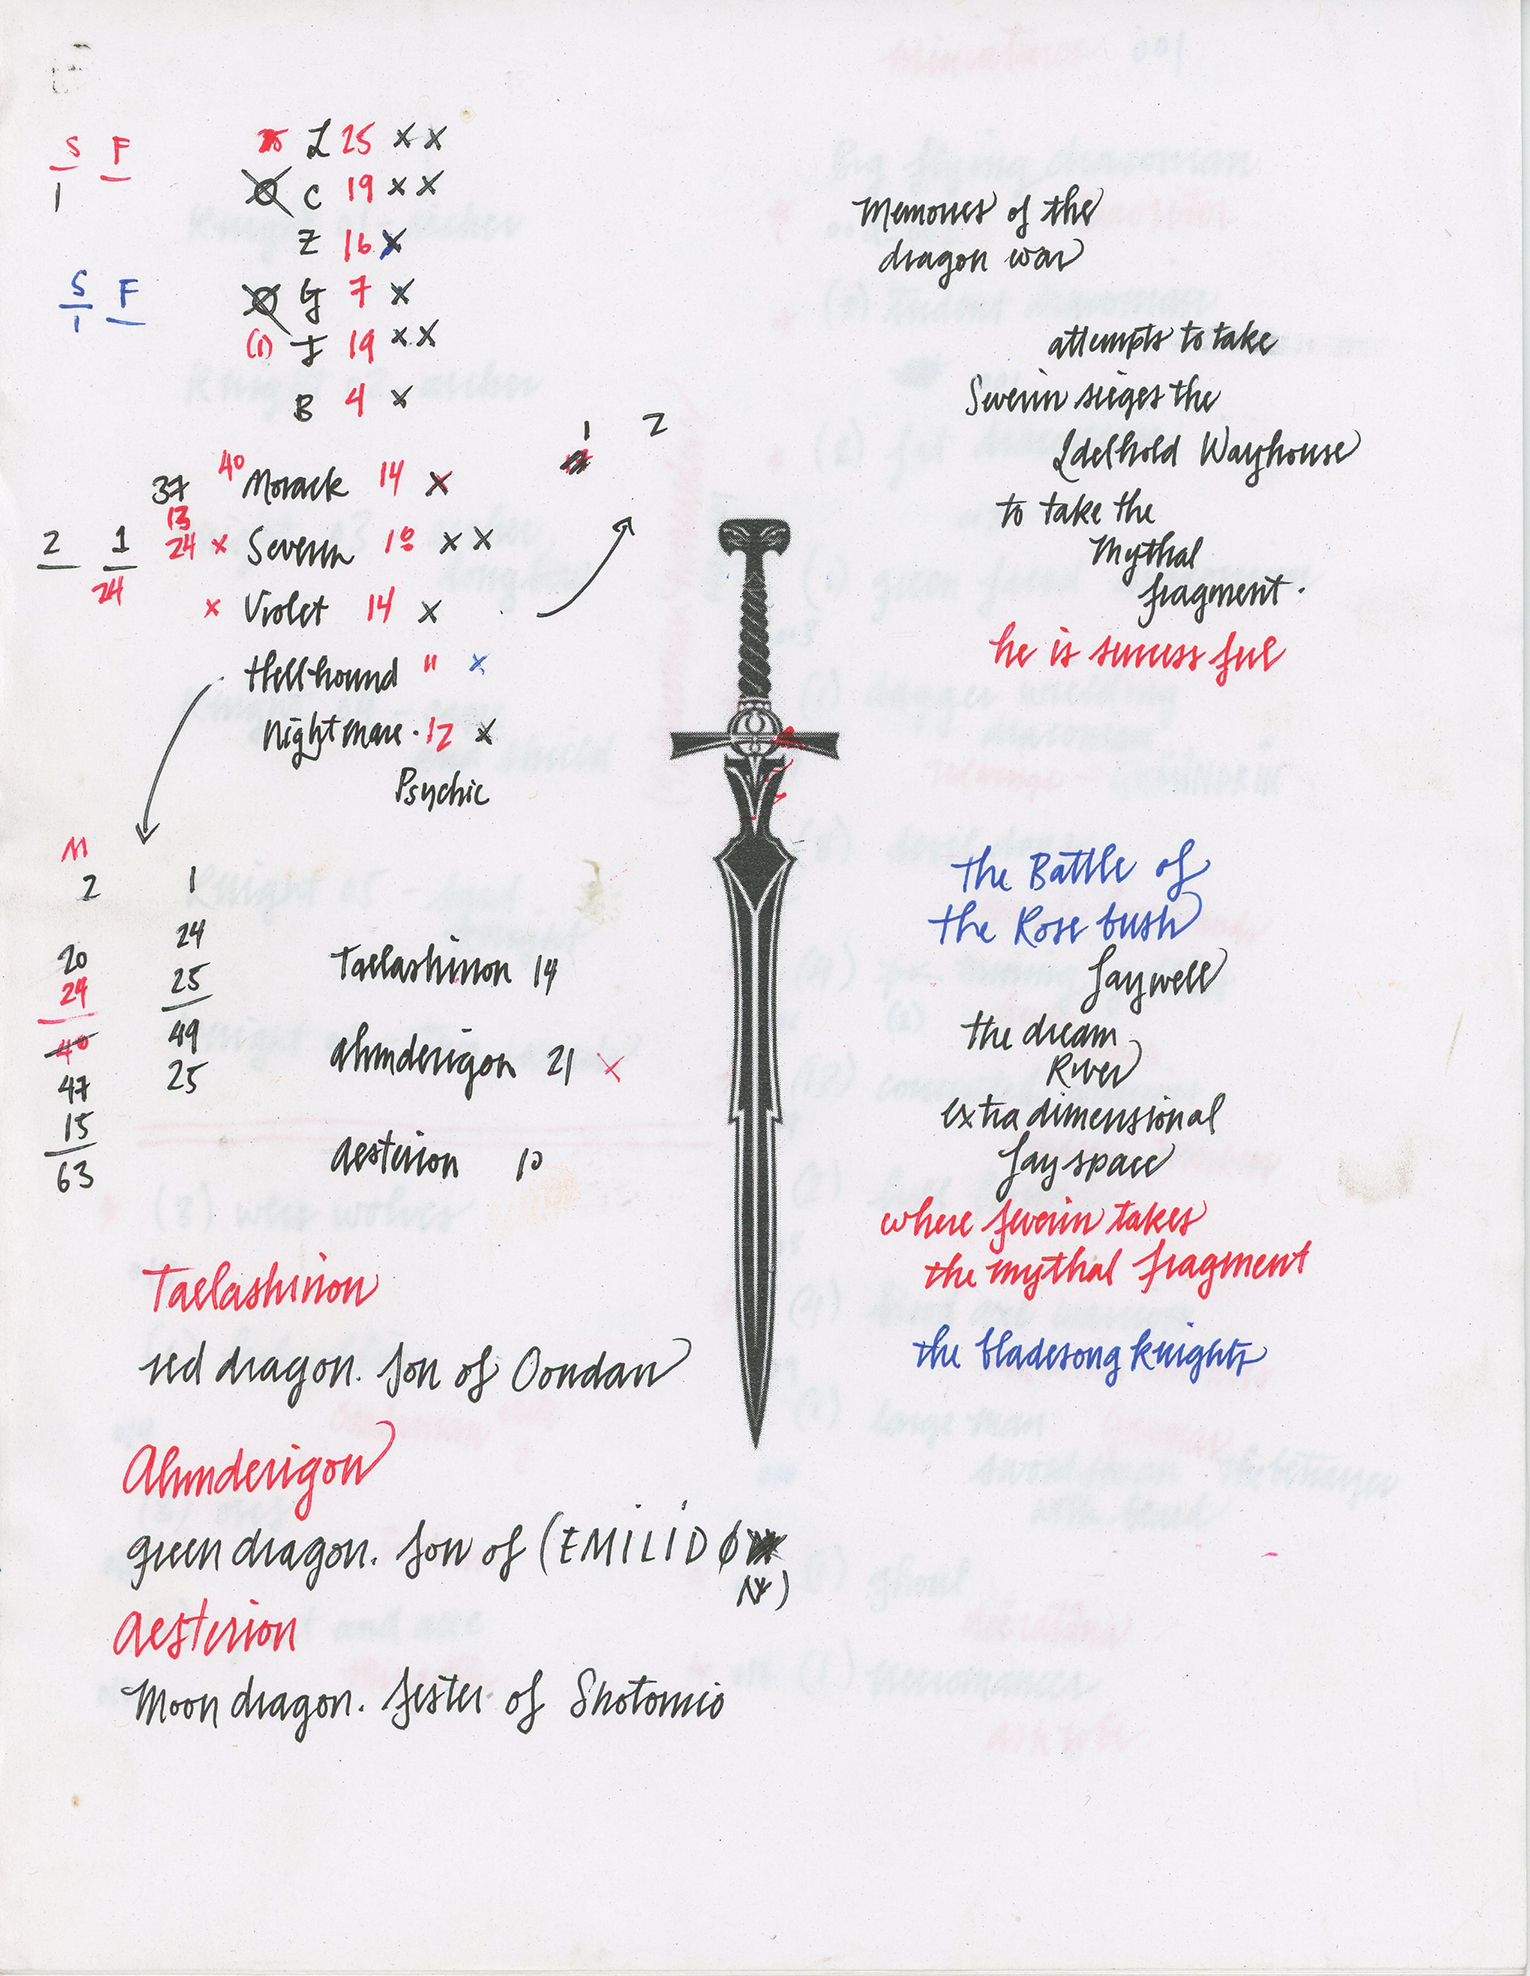 S F
1
L 25 x x
C 19 x x
Z 16 x
S F
1
G 7 x
(1) F 19 x x
B 4 x
1 2
37 40 Morack 14 x
13
2 1 24 x Severin 10 x x
24
x Violet 14 x
Hellhound 11 x
Nightmare. 12 x
Psychic
M
2 1
20 24
24 25
40 49
47 25
15
63
Taelashinon 14
Ahmderigon 21 x
Aesterion 10
Taelashinon
red dragon. Son of Oondan
Ahmderigon
green dragon. Son of (EMILID
)
Aesterion
Moon dragon. Sester of Shotomio
Memories of the
dragon war
attempts to take
Severin sieges the
Edelhold Wayhouse
to take the
Mythal
fragment.
he is sucessful
the Battle of
the Rose bush
Faywell
the dream
River
extra dimensional
Fay space
where Severin takes
the mythal fragment
the bladesong knights